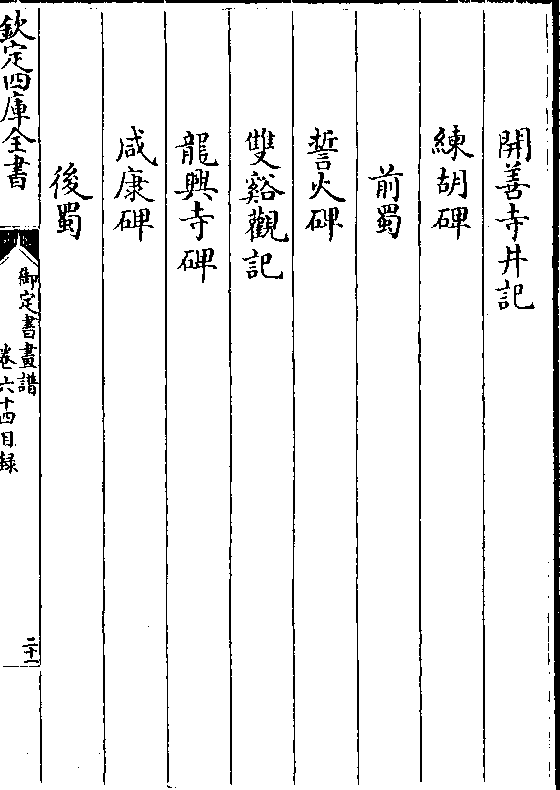 開善寺井記
練胡碑
前蜀
誓火碑
雙谿觀記
龍興寺碑
咸康碑
後蜀
欽定四庫全書
御定書畫譜
卷六十四目録
二十一